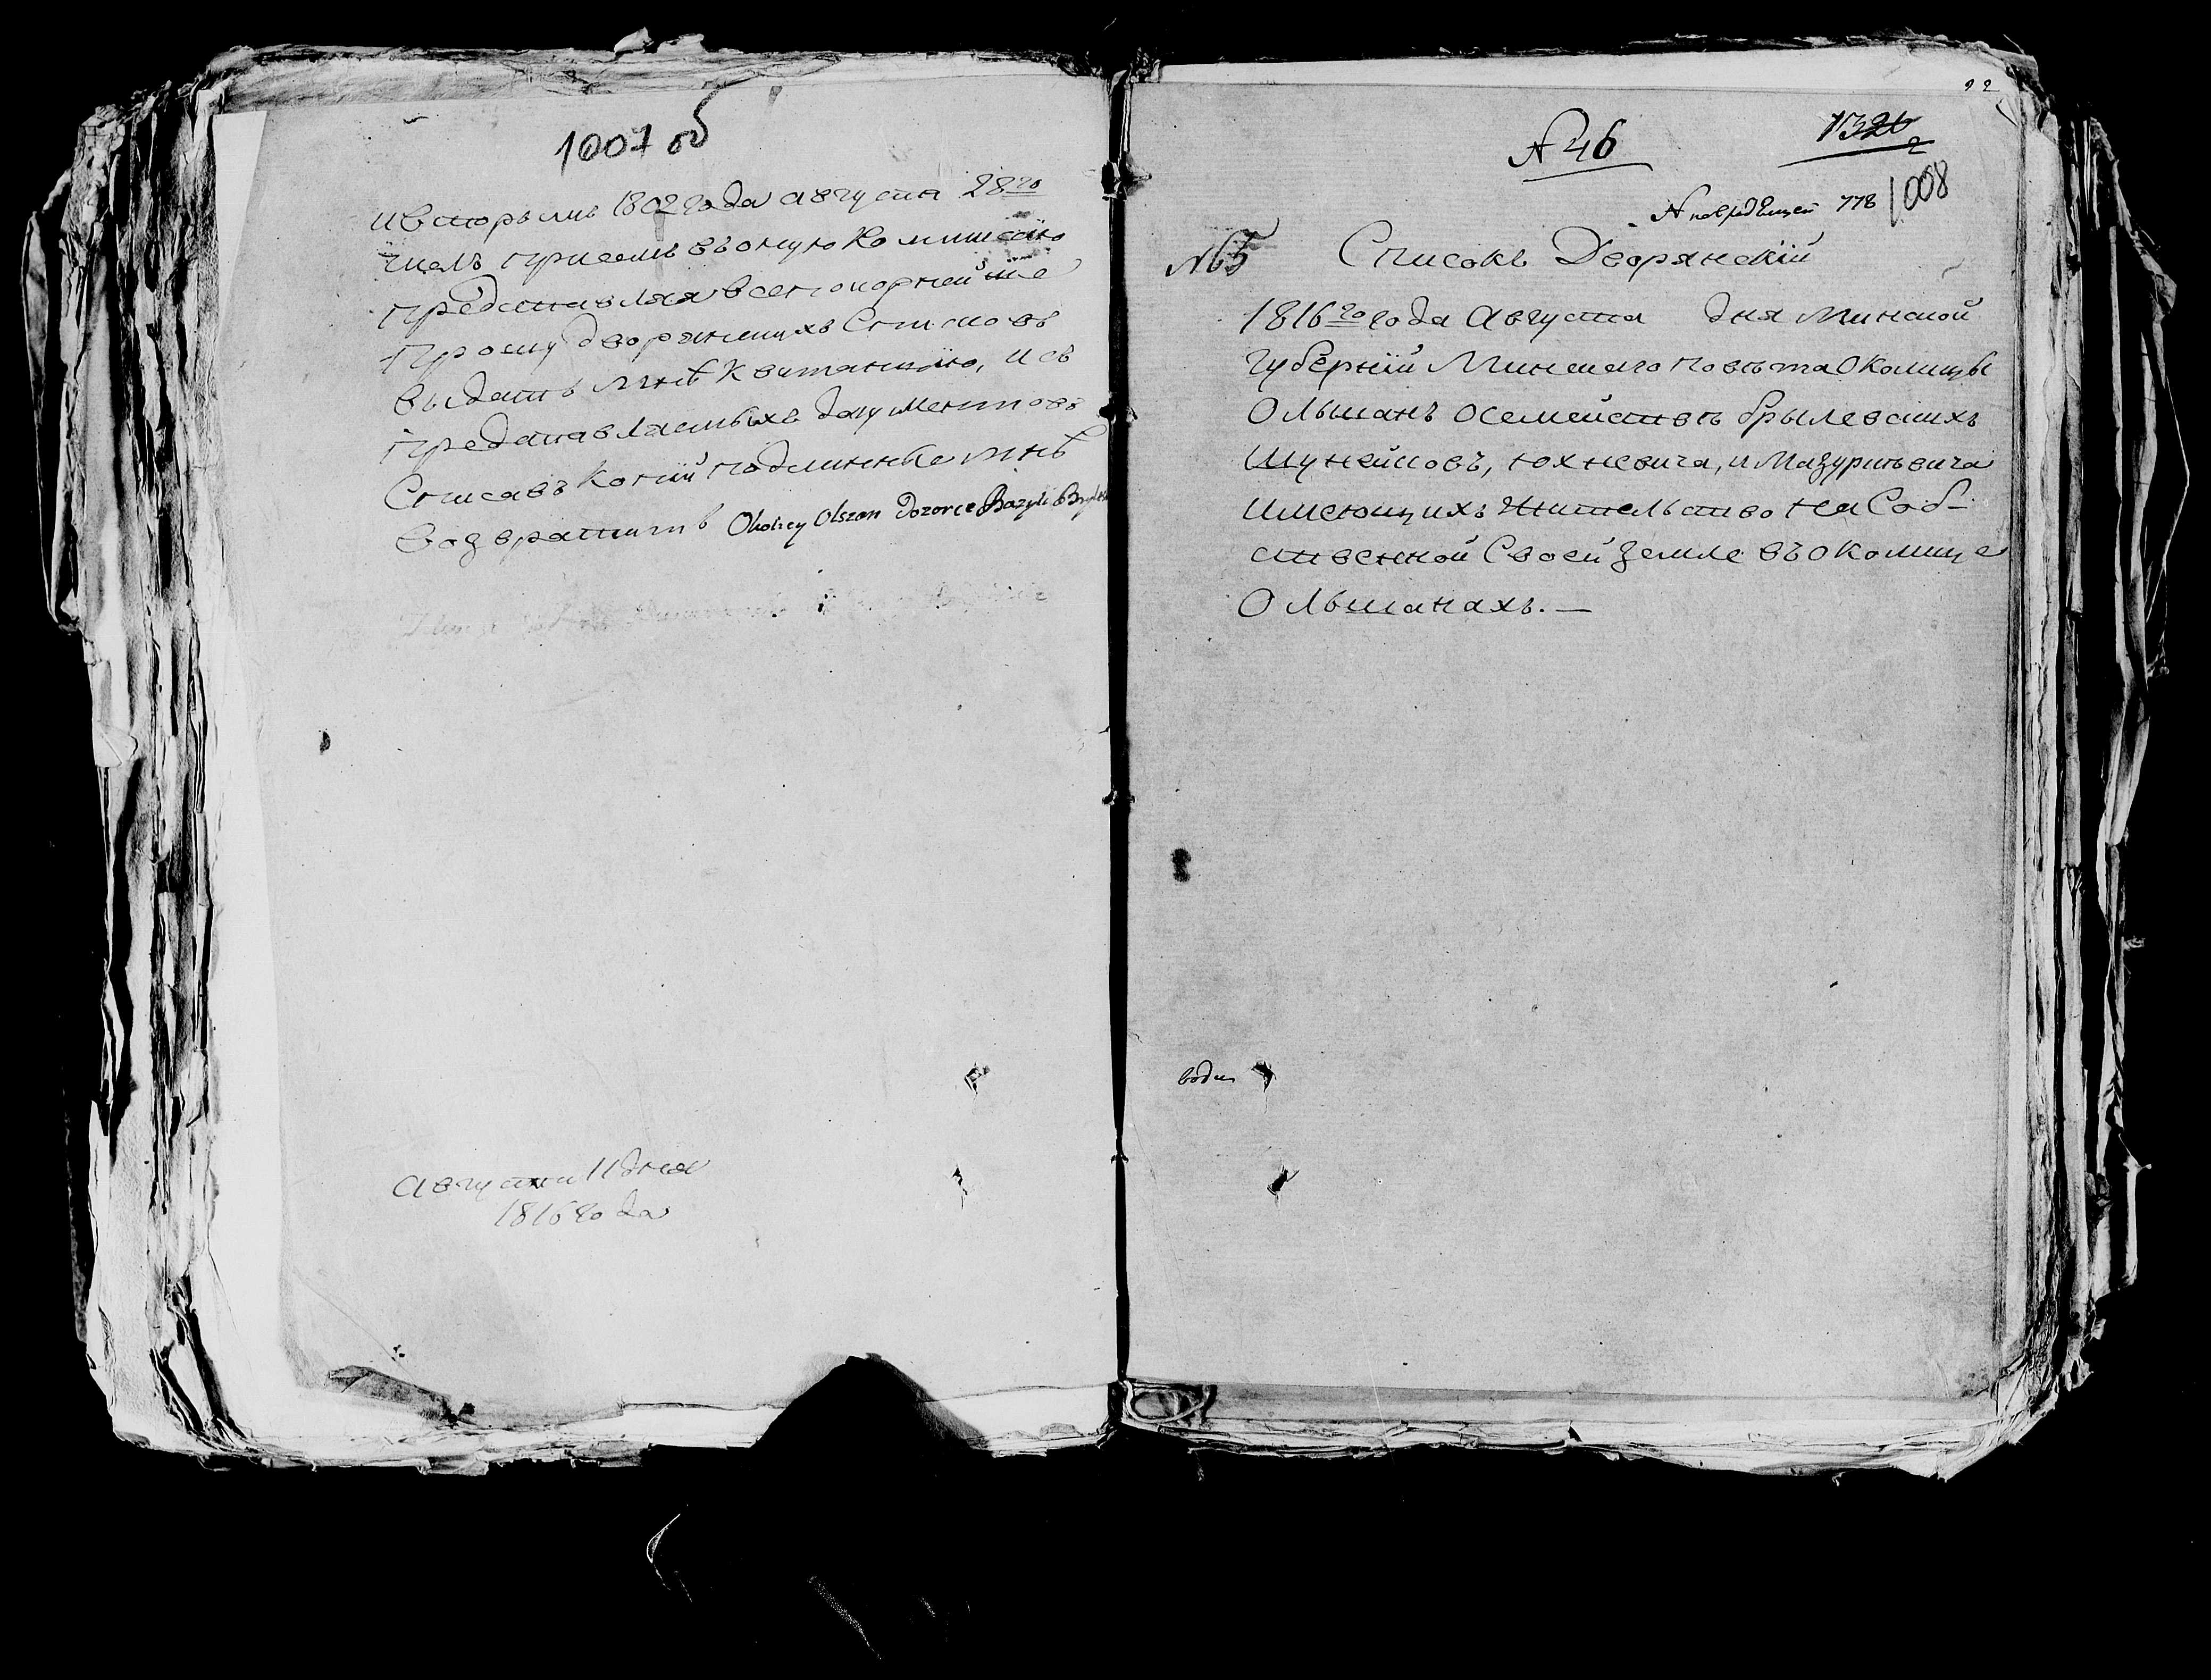 1007 об
и вторымъ 1802 года августа 28го
числъ при семъ въ оную Коммисiю
представляя всепокорнейше
Прошу дворянскихъ Списковъ
выдать мнѣ Квитанцiю, и съ
Представляемыхъ документовъ
Списавъ Копiи подлинные мнѣ
Возвратить Okolicy Olszan Dozorce Bazyli
Августа 11 дня
1816 года
22
№ 46
1326
2
№ повредѣщей 778
1008
№ 5
Списокъ Дворянскiй
1816го года Августа дня Минской
Губернiи Минскаго Повѣта Околицы
Ольшанъ о семействѣ Брылевскихъ
Шунейковъ, Юхневича, и Мазуркѣвича
Имеющихъ Жительство на Соб-
ственной Своей Земле въ околице
Ольшанахъ. —